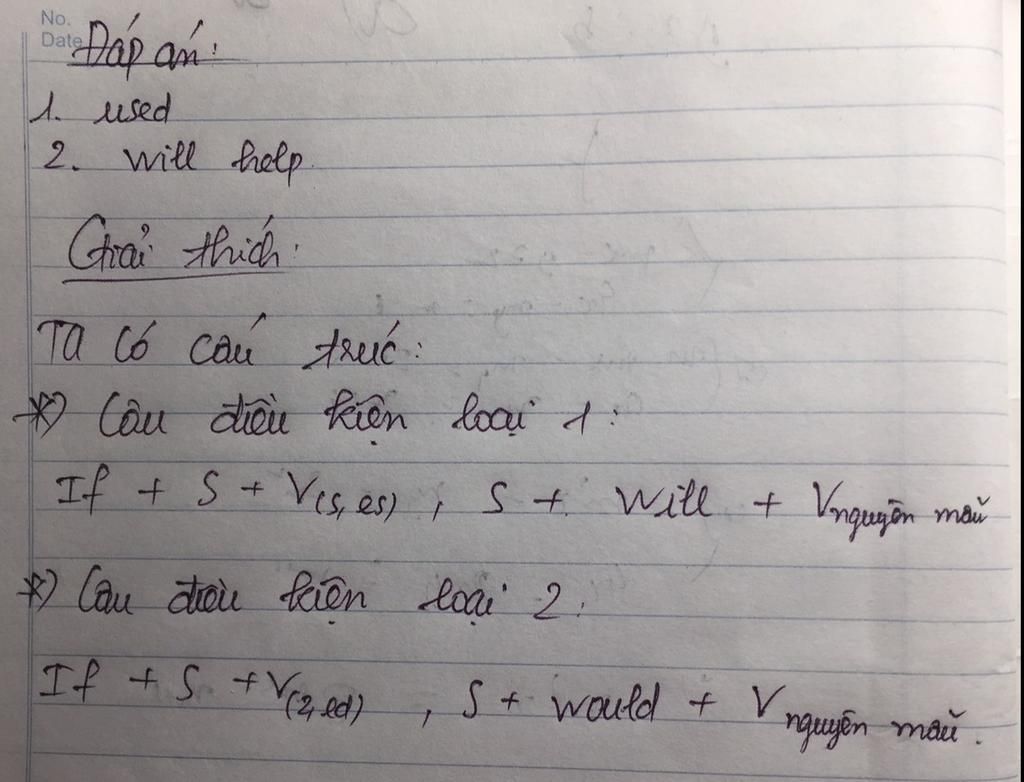 No.
Date
Đáp án:
1. used
2. will help.
Giải thích:
Ta có cấu trúc:
*) Câu điều kiện loại 1:
If + S + V(s, es) , S + will + V nguyên mẫu
*) Câu điều kiện loại 2:
If + S + V(2, ed) , S + would + V nguyên mẫu.